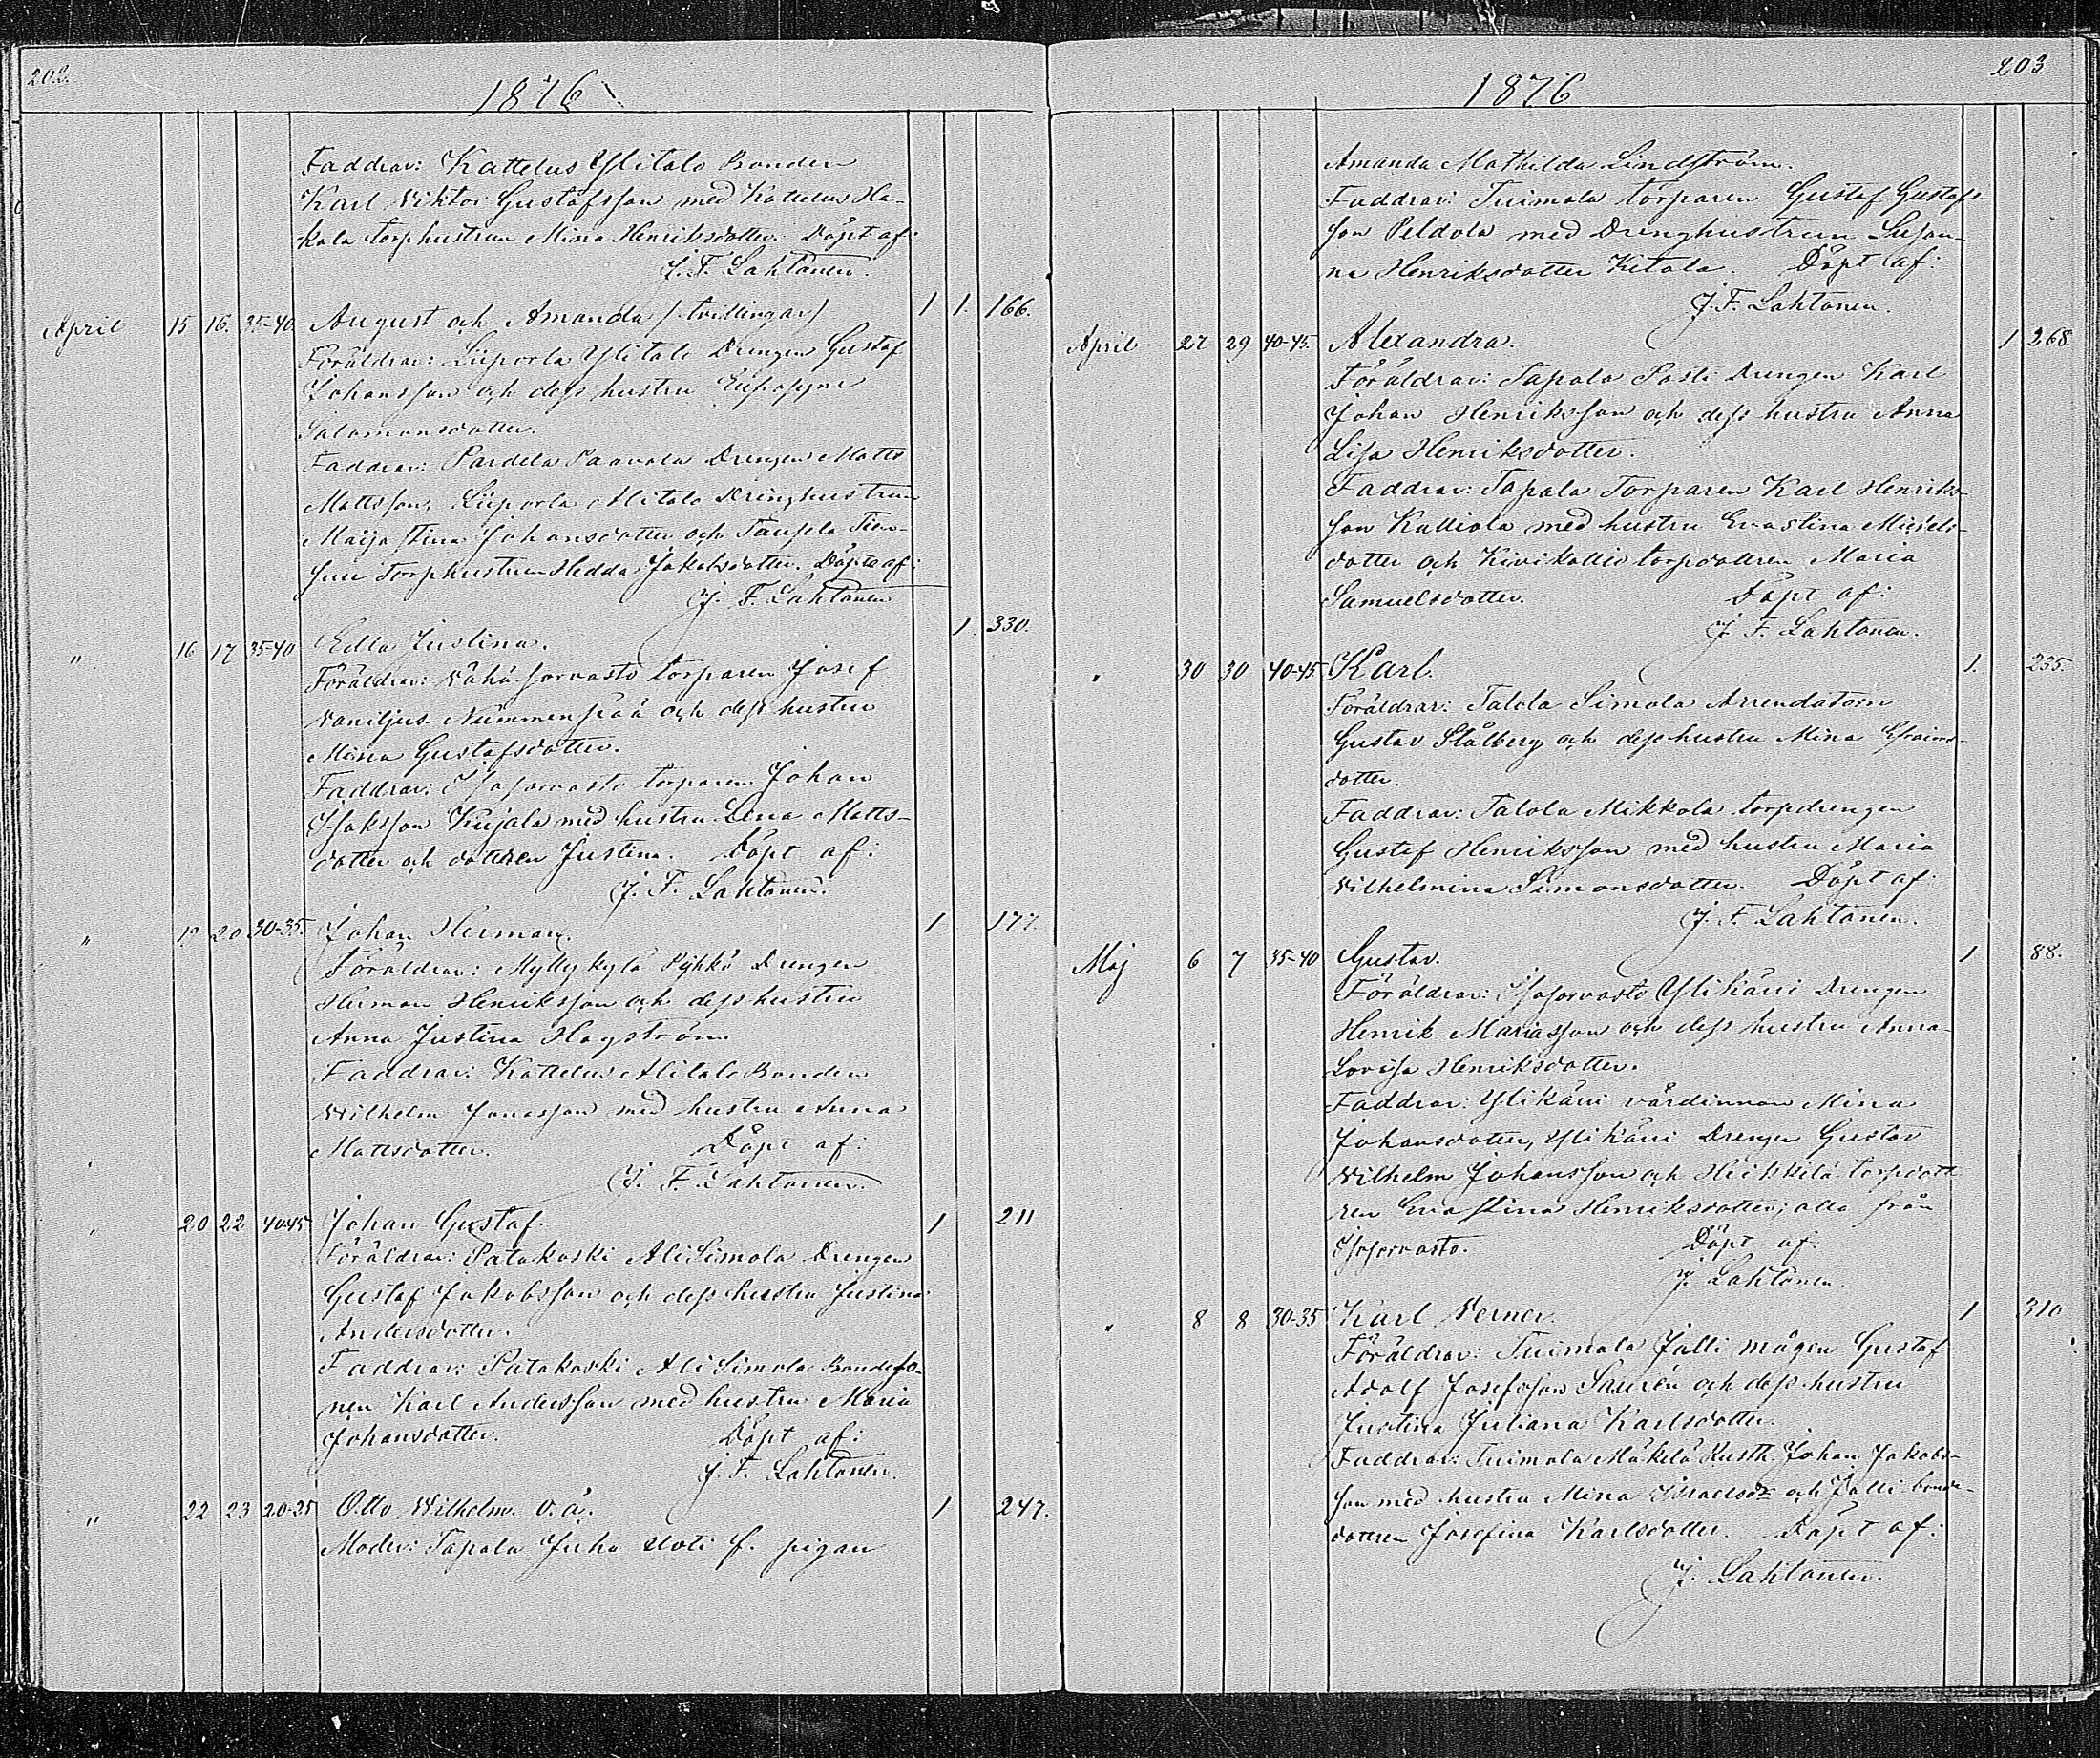 202.
1876
Faddrar: Kattelus Ylitalo Bonden
Karl Viktor Gustafsson med Kattelus Ha-
kala torphustrun Mina Henriksdotter. Döpt af:
J. F. Lahtonen.
April 15 16. 35-40 August och Amanda (tvillingar) 1 1. 166.
Föräldrar: Liiporla Ylitalo Drengen Gustaf
Johansson och dess hustru
Salomonsdotter.
Faddrar: Pardela Paavola Drengen Matts
Mattsson, Liiporla Alitalo Drenghustrun
Maija Stina Johansdotter och
Torphustrun Hedda Jakobsdotter. Döpte af:
J. F. Lahtonen
" 16 17 35-40 Edla Justina. 1 330.
Föräldrar: Vähäsorvasto torparen Josef
Nummenpää och dess hustru
Mina Gustafsdotter.
Faddrar: Isosorvasto torparen Johan
Isaksson Kujala med hustru Lena Matts-
dotter och dottren Justina. Döpt af:
J. F. Lahtonen.
" 19 20 30-35. Johan Herman. 1 177.
Föräldrar: Myllykylä Pyhkö Drengen
Herman Henriksson och dess hustru
Anna Justina Hagström.
Faddrar: Kattelus Alitalo Bonden
Wilhelm Jonasson med hustru Anna
Mattsdotter. Döpt af:
J. F. Lahtonen.
" 20 22 40-45 Johan Gustaf. 1 211
Föräldrar: Patakoski Ali Simola Drengen
Gustaf Jakobsson och dess hustru Justina
Andersdotter.
Faddrar: Patakoski Ali Simola Bondeso-
nen Karl Andersson med hustru Maria
Johansdotter. Döpt af:
J. F. Lahtonen.
" 22 23 20-25 Otto Wilhelm. o. ä. 1 247.
Moder: Tapala Juha f. pigan
203.
1876
Amanda Mathilda Lindström.
Faddrar: Tuimala torparen Gustaf Gustafs-
son Peldola med Drenghustrun Susan-
na Henriksdotter Ketola. Döpt af:
J. F. Lahtonen.
April 27 29 40-45. Alexandra. 1 268.
Föräldrar: Tapala Pasti Drengen Karl
Johan Henriksson och dess hustru Anna
Lisa Henriksdotter.
Faddrar: Tapala Torparen Karl Henriks-
son Kalliola med hustru Eva Stina Michels-
dotter och Kivikallio torpdottren Maria
Samuelsdotter. Döpt af:
J. F. Lahtonen.
" 30 30 40-45. Karl. 1. 235.
Föräldrar: Talola Simola Arrendatorn
Gustav Stålberg och dess hustru Mina Efraims-
dotter.
Faddrar: Talola Mikkola torpdrengen
Gustaf Henriksson med hustru Maria
Vilhelmina Simonsdotter. Döpt af:
J. F. Lahtonen.
Maj 6 7 35-40 Gustav. 1 88.
Föräldrar: Isosorvasto Ylikäri Drengen
Henrik Mariasson och dess hustru Anna
Lovisa Henriksdotter.
Faddrar: Ylikäri värdinnan Mina
Johansdotter, Ylikäri Drengen Gustav
Vilhelm Johansson och Heikkilä torpdott-
ren Eva Stina Henriksdotter; alla från
Isosorvasto. Döpt af:
J. Lahtonen.
" 8 8 30-35 Karl Verner. 1 310
Föräldrar: Tuimala Jalli mågen Gustaf
Adolf Josefsson Saurén och dess hustru
Justina Juliana Karlsdotter.
Faddrar: Tuimala Mäkelä Rusth. Johan Jakobs-
son med hustru Mina Israelsdr och Jalli bonde-
dottren Josefina Karlsdotter. Döpt af:
J. Lahtonen.